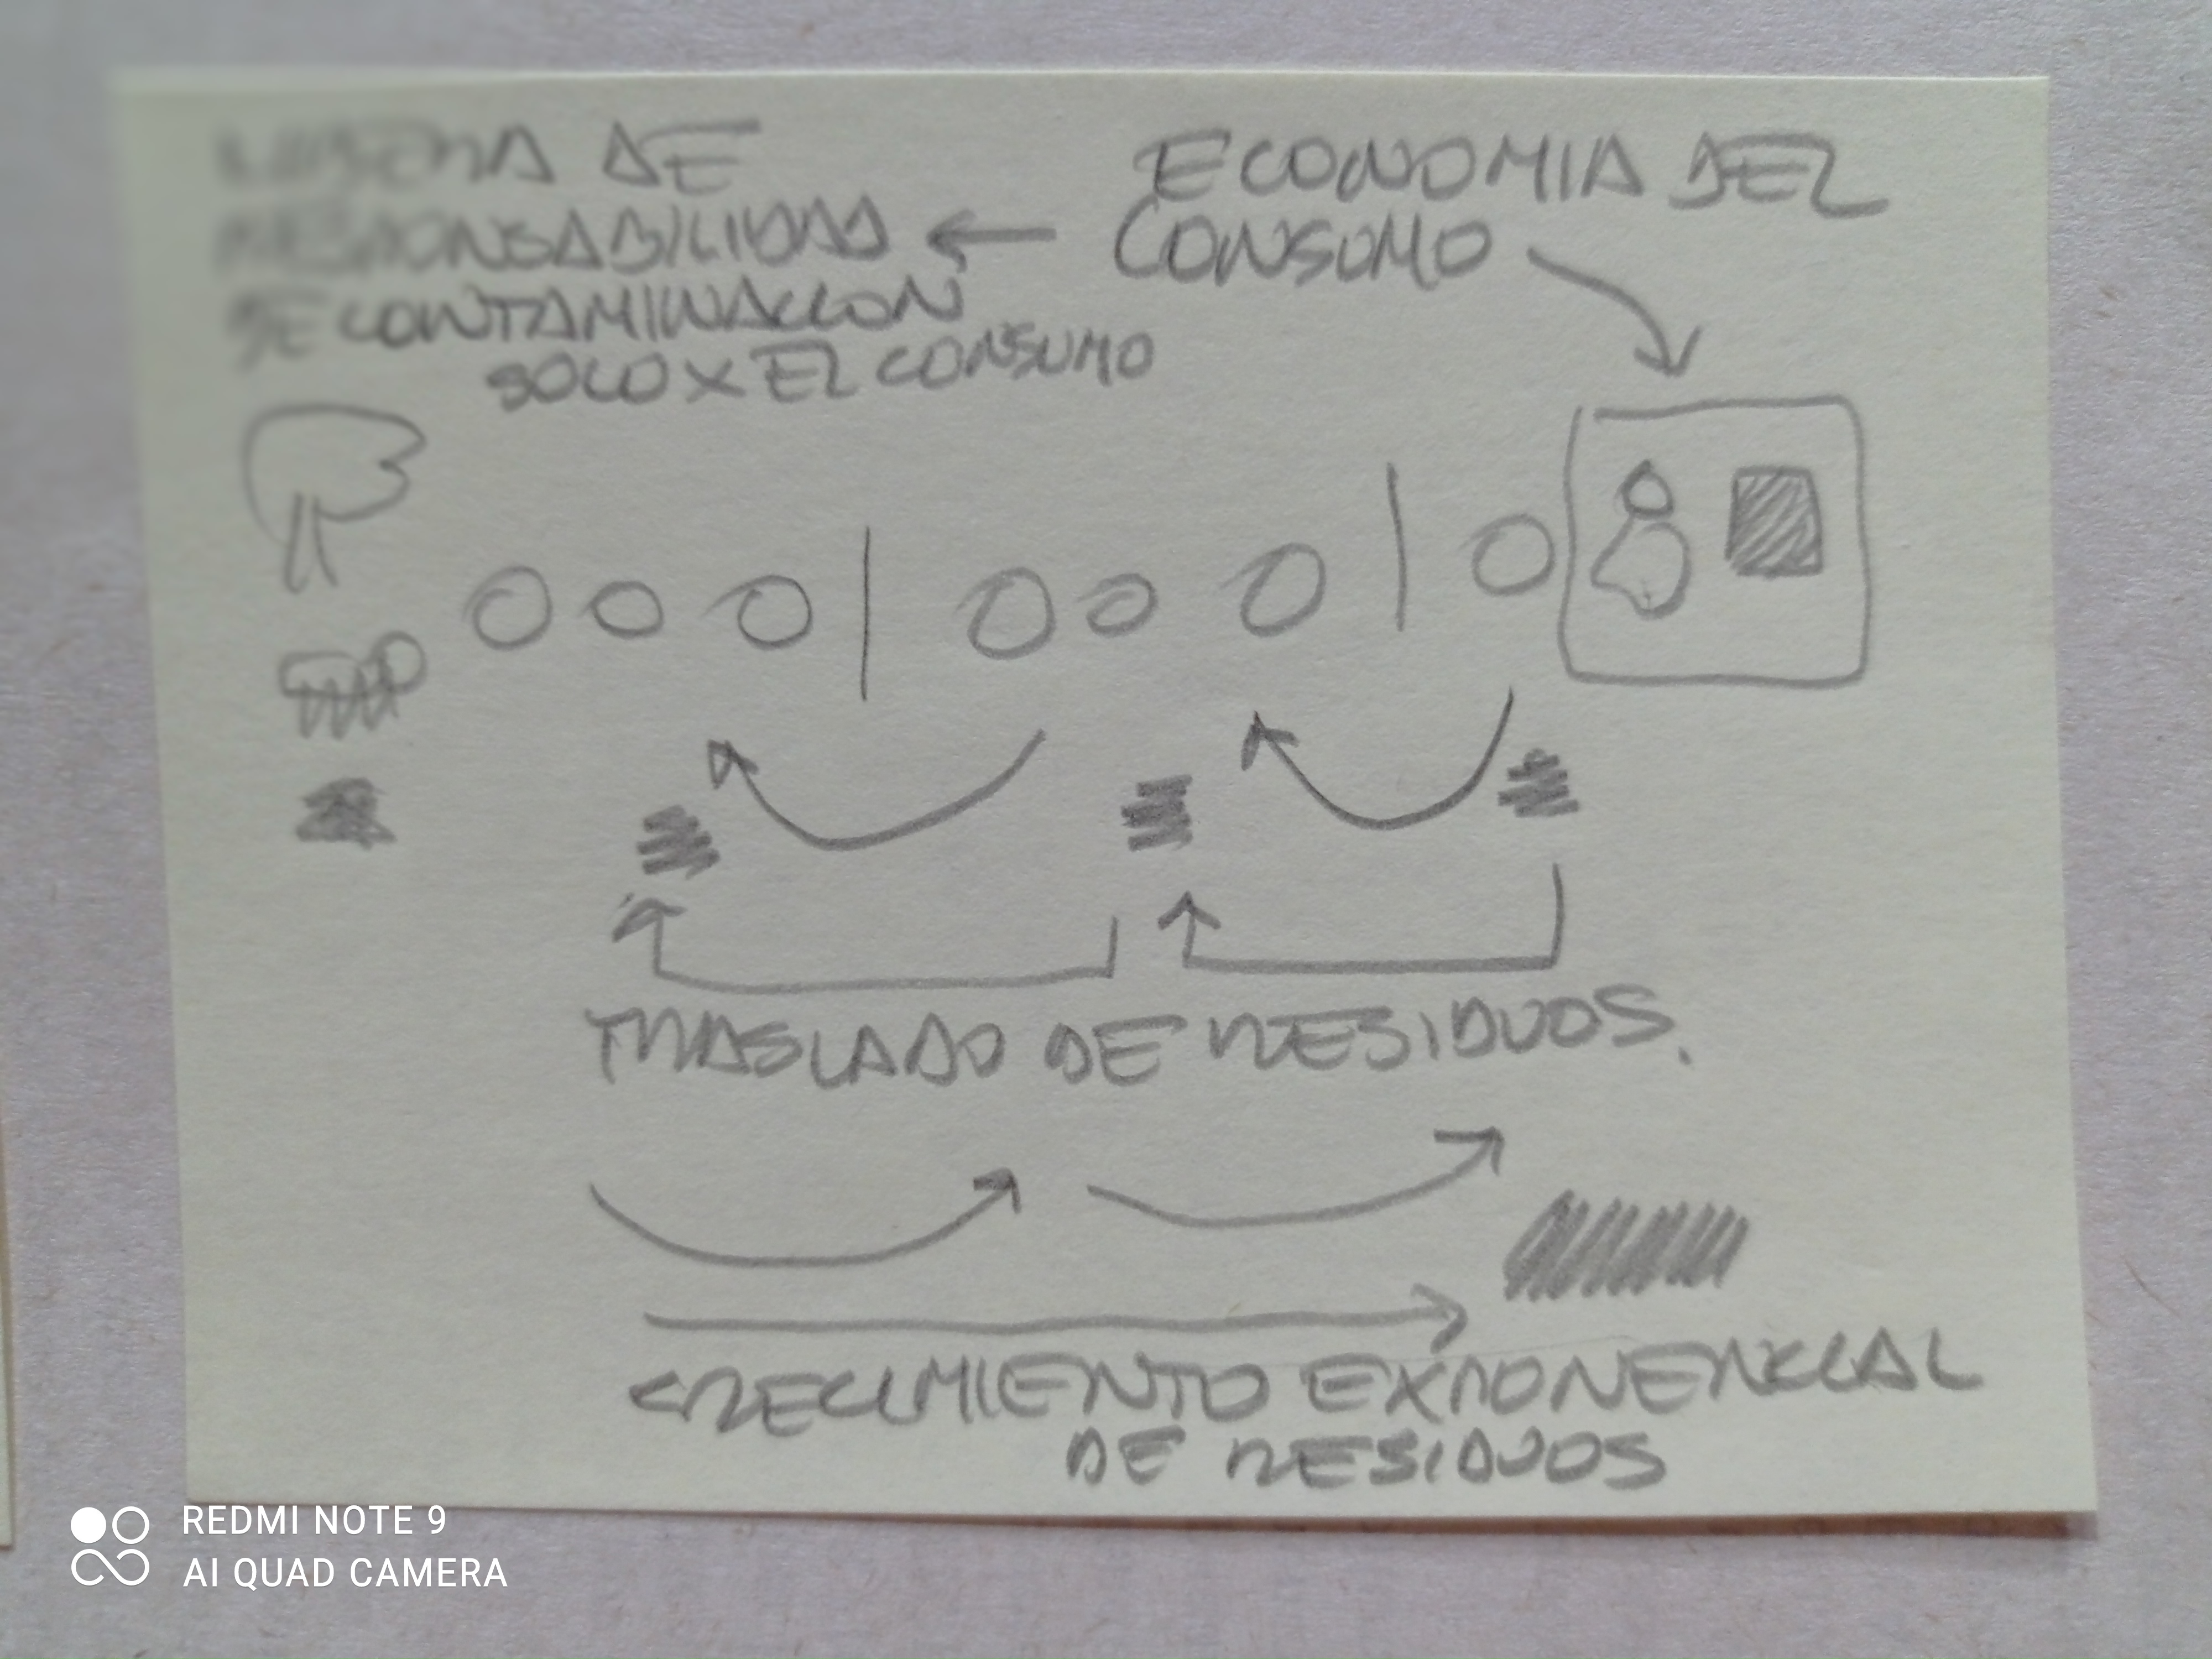 DE
RESPONSABILIDAD
DE CONTAMINACION
SOLO X EL CONSUMO
ECONOMIA DEL
CONSUMO
TRASLADO DE RESIDUOS.
CRECIMIENTO EXPONENCIAL
DE RESIDUOS
REDMI NOTE 9
AI QUAD CAMERA